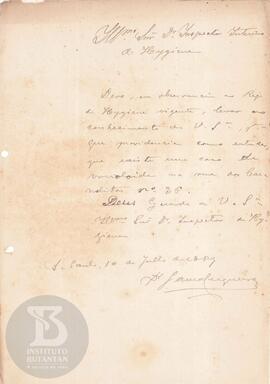 Illmo Snr Dr Inspector Interino
de Hygiene
Devo, em observancia ao Reg.
de Hygiene vigente, levar ao
conhecimento de V. Sa,
que providencia como entender,
que existe um caso de
varioloide na rua dos
nº 26.
Deus Guarde a V. Sa
Illmo Snr Dr Inspector de Hy
giene
S. Paulo, 10 de Julho de 1889
Dr
INSTITUTO
BUTANTAN